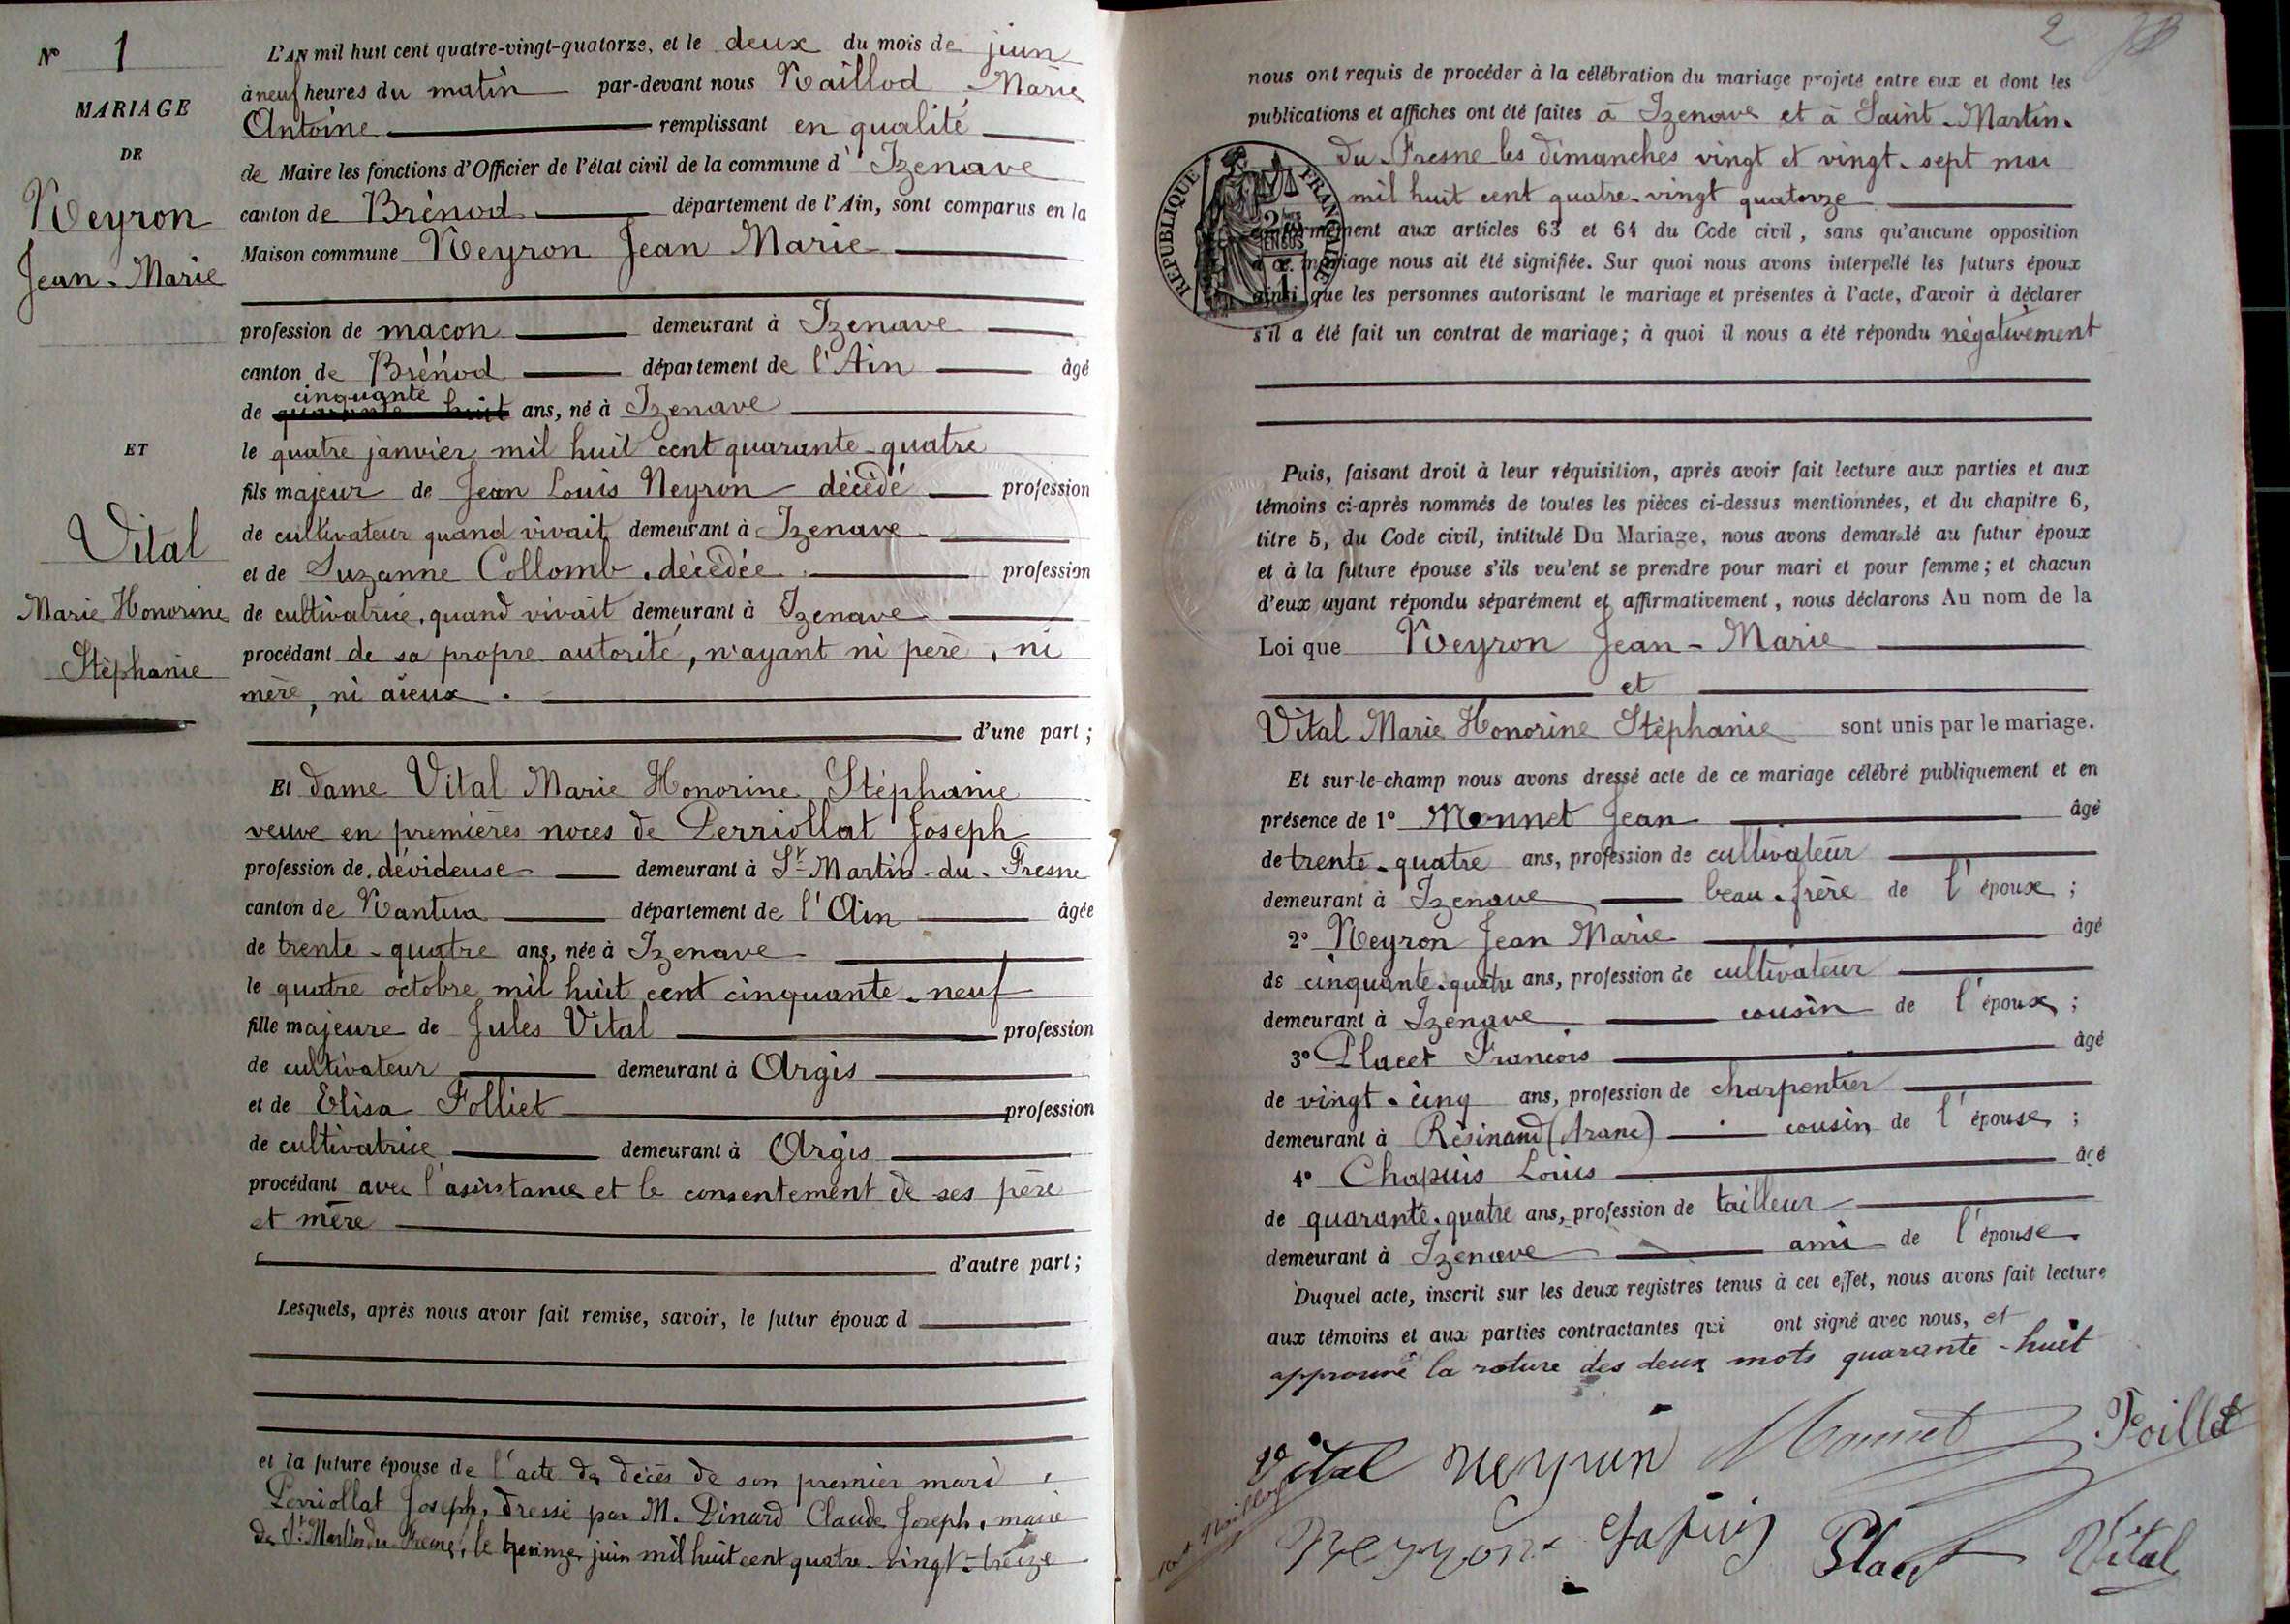 N° 1
MARIAGE
DE
Neyron
Jean-Marie
ET
Vital
Marie Honorine
Stéphanie
L'AN mil huit cent quatre-vingt-quatorze, et le deux du mois de juin
à neuf heures du matin par-devant nous Naillod Marie
Antoine remplissant en qualité
de Maire les fonctions d'Officier de l'état civil de la commune d' Izenave
canton de Brénod département de l'Ain, sont comparus en la
Maison commune Neyron Jean Marie
profession de maçon demeurant à Izenave
canton de Brénod département de l'Ain âgé
cinquante
de quarante huit ans, né à Izenave
le quatre janvier mil huit cent quarante-quatre
fils majeur de Jean Louis Neyron décédé profession
de cultivateur quand vivait demeurant à Izenave
et de Suzanne Collomb, décédée profession
de cultivatrice, quand vivait demeurant à Izenave
procédant de sa propre autorité, n'ayant ni père, ni
mère, ni aïeux.
d'une part;
Et dame Vital Marie Honorine Stéphanie
veuve en premières noces de Perriollat Joseph
profession de dévideuse demeurant à St Martin-du-Fresne
canton de Nantua département de l'Ain âgée
de trente-quatre ans, née à Izenave
le quatre octobre mil huit cent cinquante-neuf
fille majeure de Jules Vital profession
de cultivateur demeurant à Argis
et de Elisa Folliet profession
de cultivatrice demeurant à Argis
procédant avec l'assistance et le consentement de ses père
et mère
d'autre part;
Lesquels, après nous avoir fait remise, savoir, le futur époux d
et la future épouse de l'acte de décès de son premier mari,
Perriollat Joseph, dressé par M. Dinard Claude Joseph, maire
de St Martin du Fresne, le quinze juin mil huit cent quatre-vingt-treize
2
nous ont requis de procéder à la célébration du mariage projeté entre eux et dont les
publications et affiches ont été faites à Izenave et à Saint-Martin-
du-Fresne les dimanches vingt et vingt-sept mai
mil huit cent quatre-vingt quatorze
RÉPUBLIQUE FRANÇAISE
conformément aux articles 63 et 64 du Code civil, sans qu'aucune opposition
à ce mariage nous ait été signifiée. Sur quoi nous avons interpellé les futurs époux
ainsi que les personnes autorisant le mariage et présentes à l'acte, d'avoir à déclarer
s'il a été fait un contrat de mariage; à quoi il nous a été répondu négativement
Puis, faisant droit à leur réquisition, après avoir fait lecture aux parties et aux
témoins ci-après nommés de toutes les pièces ci-dessus mentionnées, et du chapitre 6,
titre 5, du Code civil, intitulé Du Mariage, nous avons demandé au futur époux
et à la future épouse s'ils veulent se prendre pour mari et pour femme; et chacun
d'eux ayant répondu séparément et affirmativement, nous déclarons Au nom de la
Loi que Neyron Jean-Marie
et
Vital Marie Honorine Stéphanie sont unis par le mariage.
Et sur-le-champ nous avons dressé acte de ce mariage célébré publiquement et en
présence de 1° Monnet Jean âgé
de trente-quatre ans, profession de cultivateur
demeurant à Izenave beau-frère de l'époux;
2° Neyron Jean Marie âgé
de cinquante-quatre ans, profession de cultivateur
demeurant à Izenave cousin de l'époux;
3° Placet François âgé
de vingt-cinq ans, profession de charpentier
demeurant à Résinand (Aranc) cousin de l'épouse;
4° Chapuis Louis âgé
de quarante-quatre ans, profession de tailleur
demeurant à Izenave ami de l'épouse.
Duquel acte, inscrit sur les deux registres tenus à cet effet, nous avons fait lecture
aux témoins et aux parties contractantes qui ont signé avec nous, et
approuvé la rature des deux mots quarante-huit
Vital Neyron Monnet Foillet
Neyron Chapuis Placet Vital